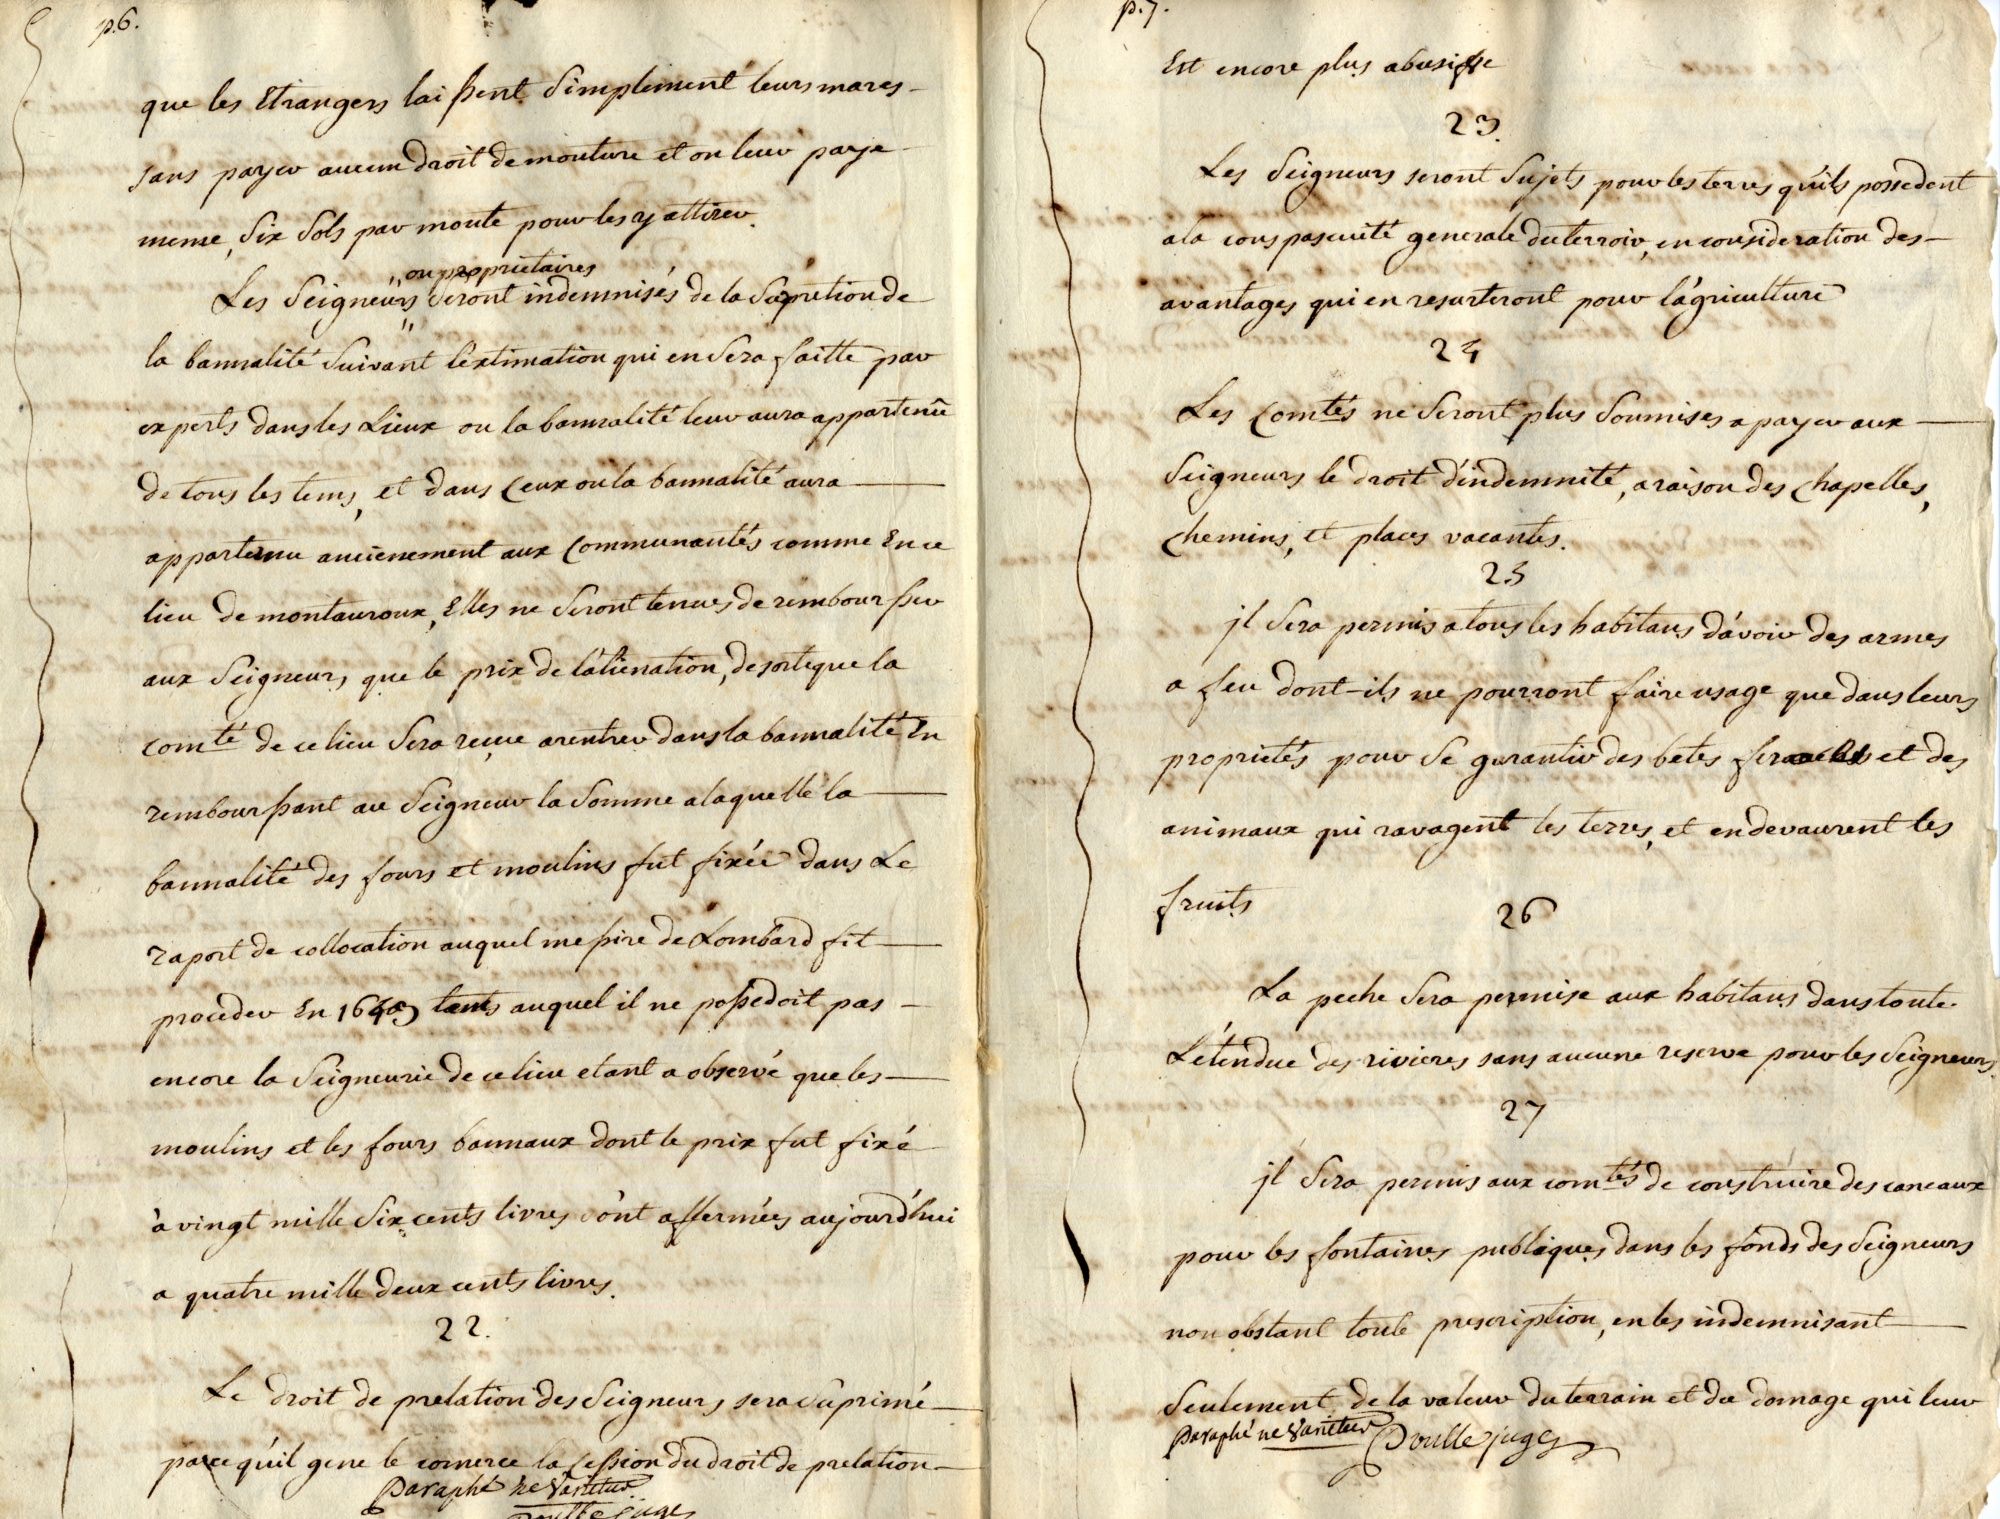 p.6.
que les Etrangers laissent simplement leurs mares
sans payer aucun droit de mouture et on leur paye
meme, six sols par moute pour les y attirer.
ou proprietaires
Les Seigneurs seront indemnisés de la supretion de
la bannalité suivant l'extimation qui en sera faitte par
experts dans les Lieux ou la bannalité leur aura appartenu
de tous les tems, et dans Ceux ou la bannalité aura
appartenu anciènement aux Communautés comme En ce
lieu de montauroux, Elles ne seront tenues de rembourser
aux Seigneurs que le prix de l'aliénation, de sorte que la
comté de ce lieu sera reçue a rentrer dans la bannalité En
remboursant au Seigneur la somme a laquelle la
bannalité des fours et moulins fut fixée dans Le
raport de collocation auquel messire de Lombard fit
proceder En tems auquel il ne possedoit pas
encore la Seigneurie de ce lieu etant a observé que les
moulins et les fours bannaux dont le prix fut fixé
à vingt mille six cents livres sont affermées aujourd'hui
a quatre mille deux cents livres.
22.
Le droit de prelation des Seigneurs sera suprimé
parce qu'il gene le comerce la cession du droit de prelation
Paraphé ne Varietur
Doulle juge
p.7.
Est encore plus abusifve
23.
Les Seigneurs seront sujets pour les terres qu'ils possedent
a la compascuité generale du terroir, en consideration des
avantages qui en resurteront pour l'ágriculture
24
Les Comtés ne seront plus soumises a payer aux
Seigneurs le droit d'indemnité, a raison des Chapelles,
Chemins, et places vacantes.
25
jl sera permis a tous les habitans d'ávoir des armes
a feu dont-ils ne pourront faire usage que dans leurs
proprietés pour se garantir des betes feroces et des
animaux qui ravagent les terres, et en devaurent les
fruits
26
La peche sera permise aux habitans dans toute
L'étendue des rivieres sans aucune reserve pour les Seigneurs.
27
jl sera permis aux comtés de construire des caneaux
pour les fontaines publiques dans les fonds des Seigneurs
non obstant toute prescription, en les indemnisant
Seulement de la valeur du terrain et du domage qui leur
Paraphé ne Varietur Doulle juge